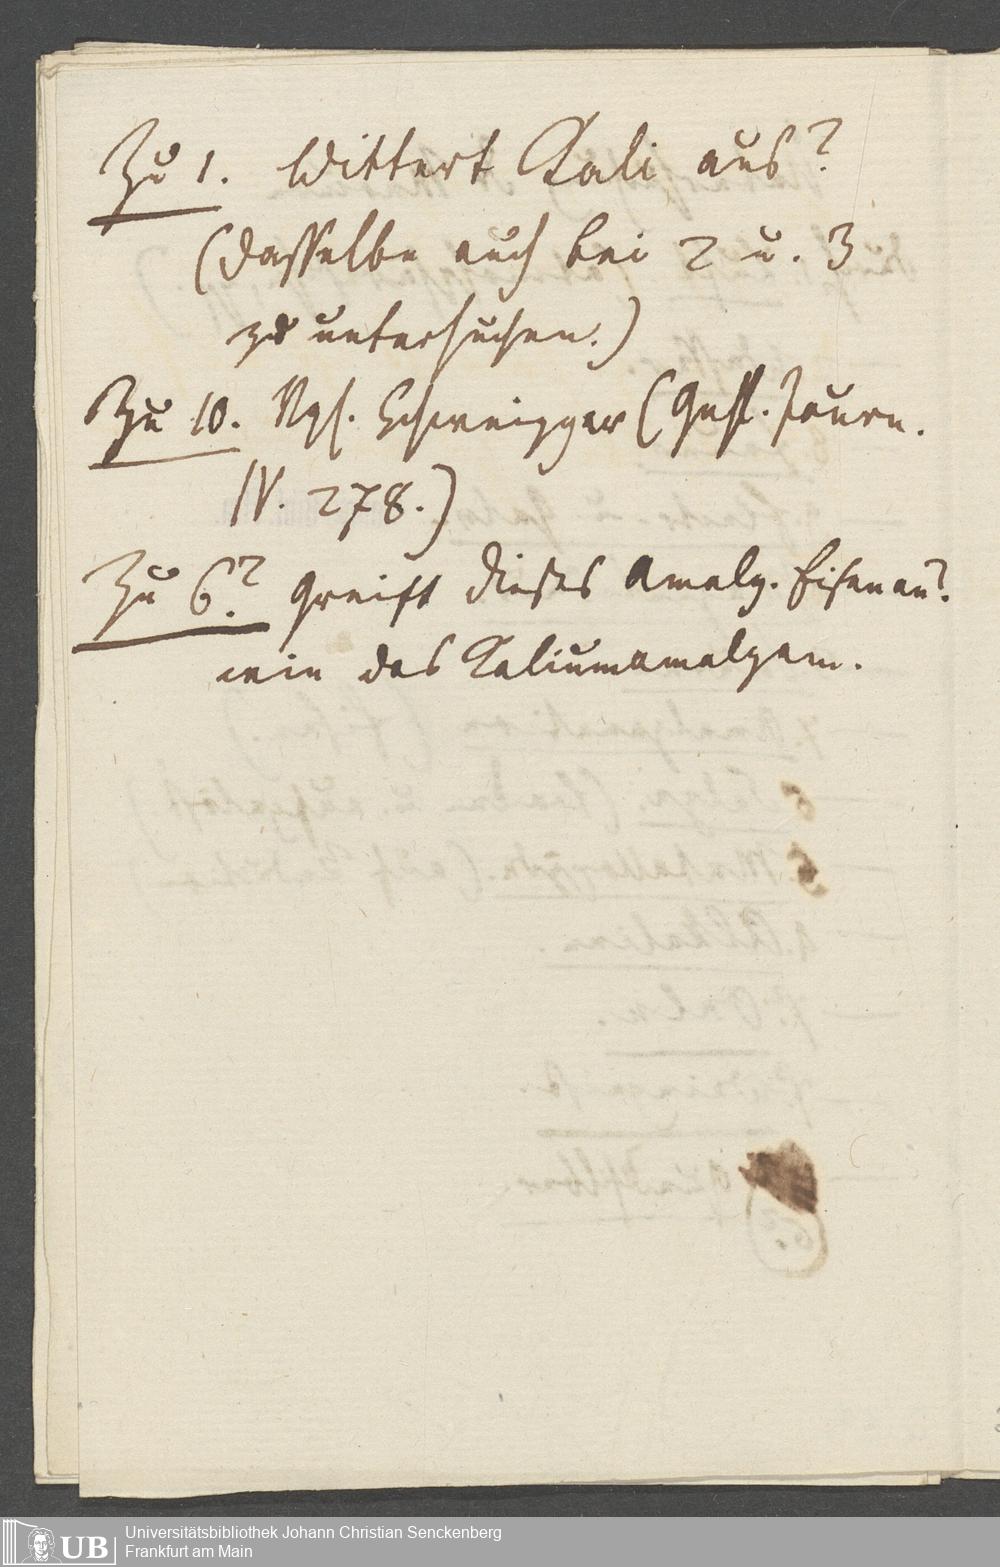 Zu 1. Wittert Kali aus?
(dasselbe auch bei 2 u. 3
zu untersuchen.)
Zu 10. Vgl. Schweigger (Gehl. Journ.
IV. 278.)
Zu 6? Greift dieses Amalg. Eisen an?
wie das Kaliumamalgam.
UB Universitätsbibliothek Johann Christian Senckenberg
Frankfurt am Main